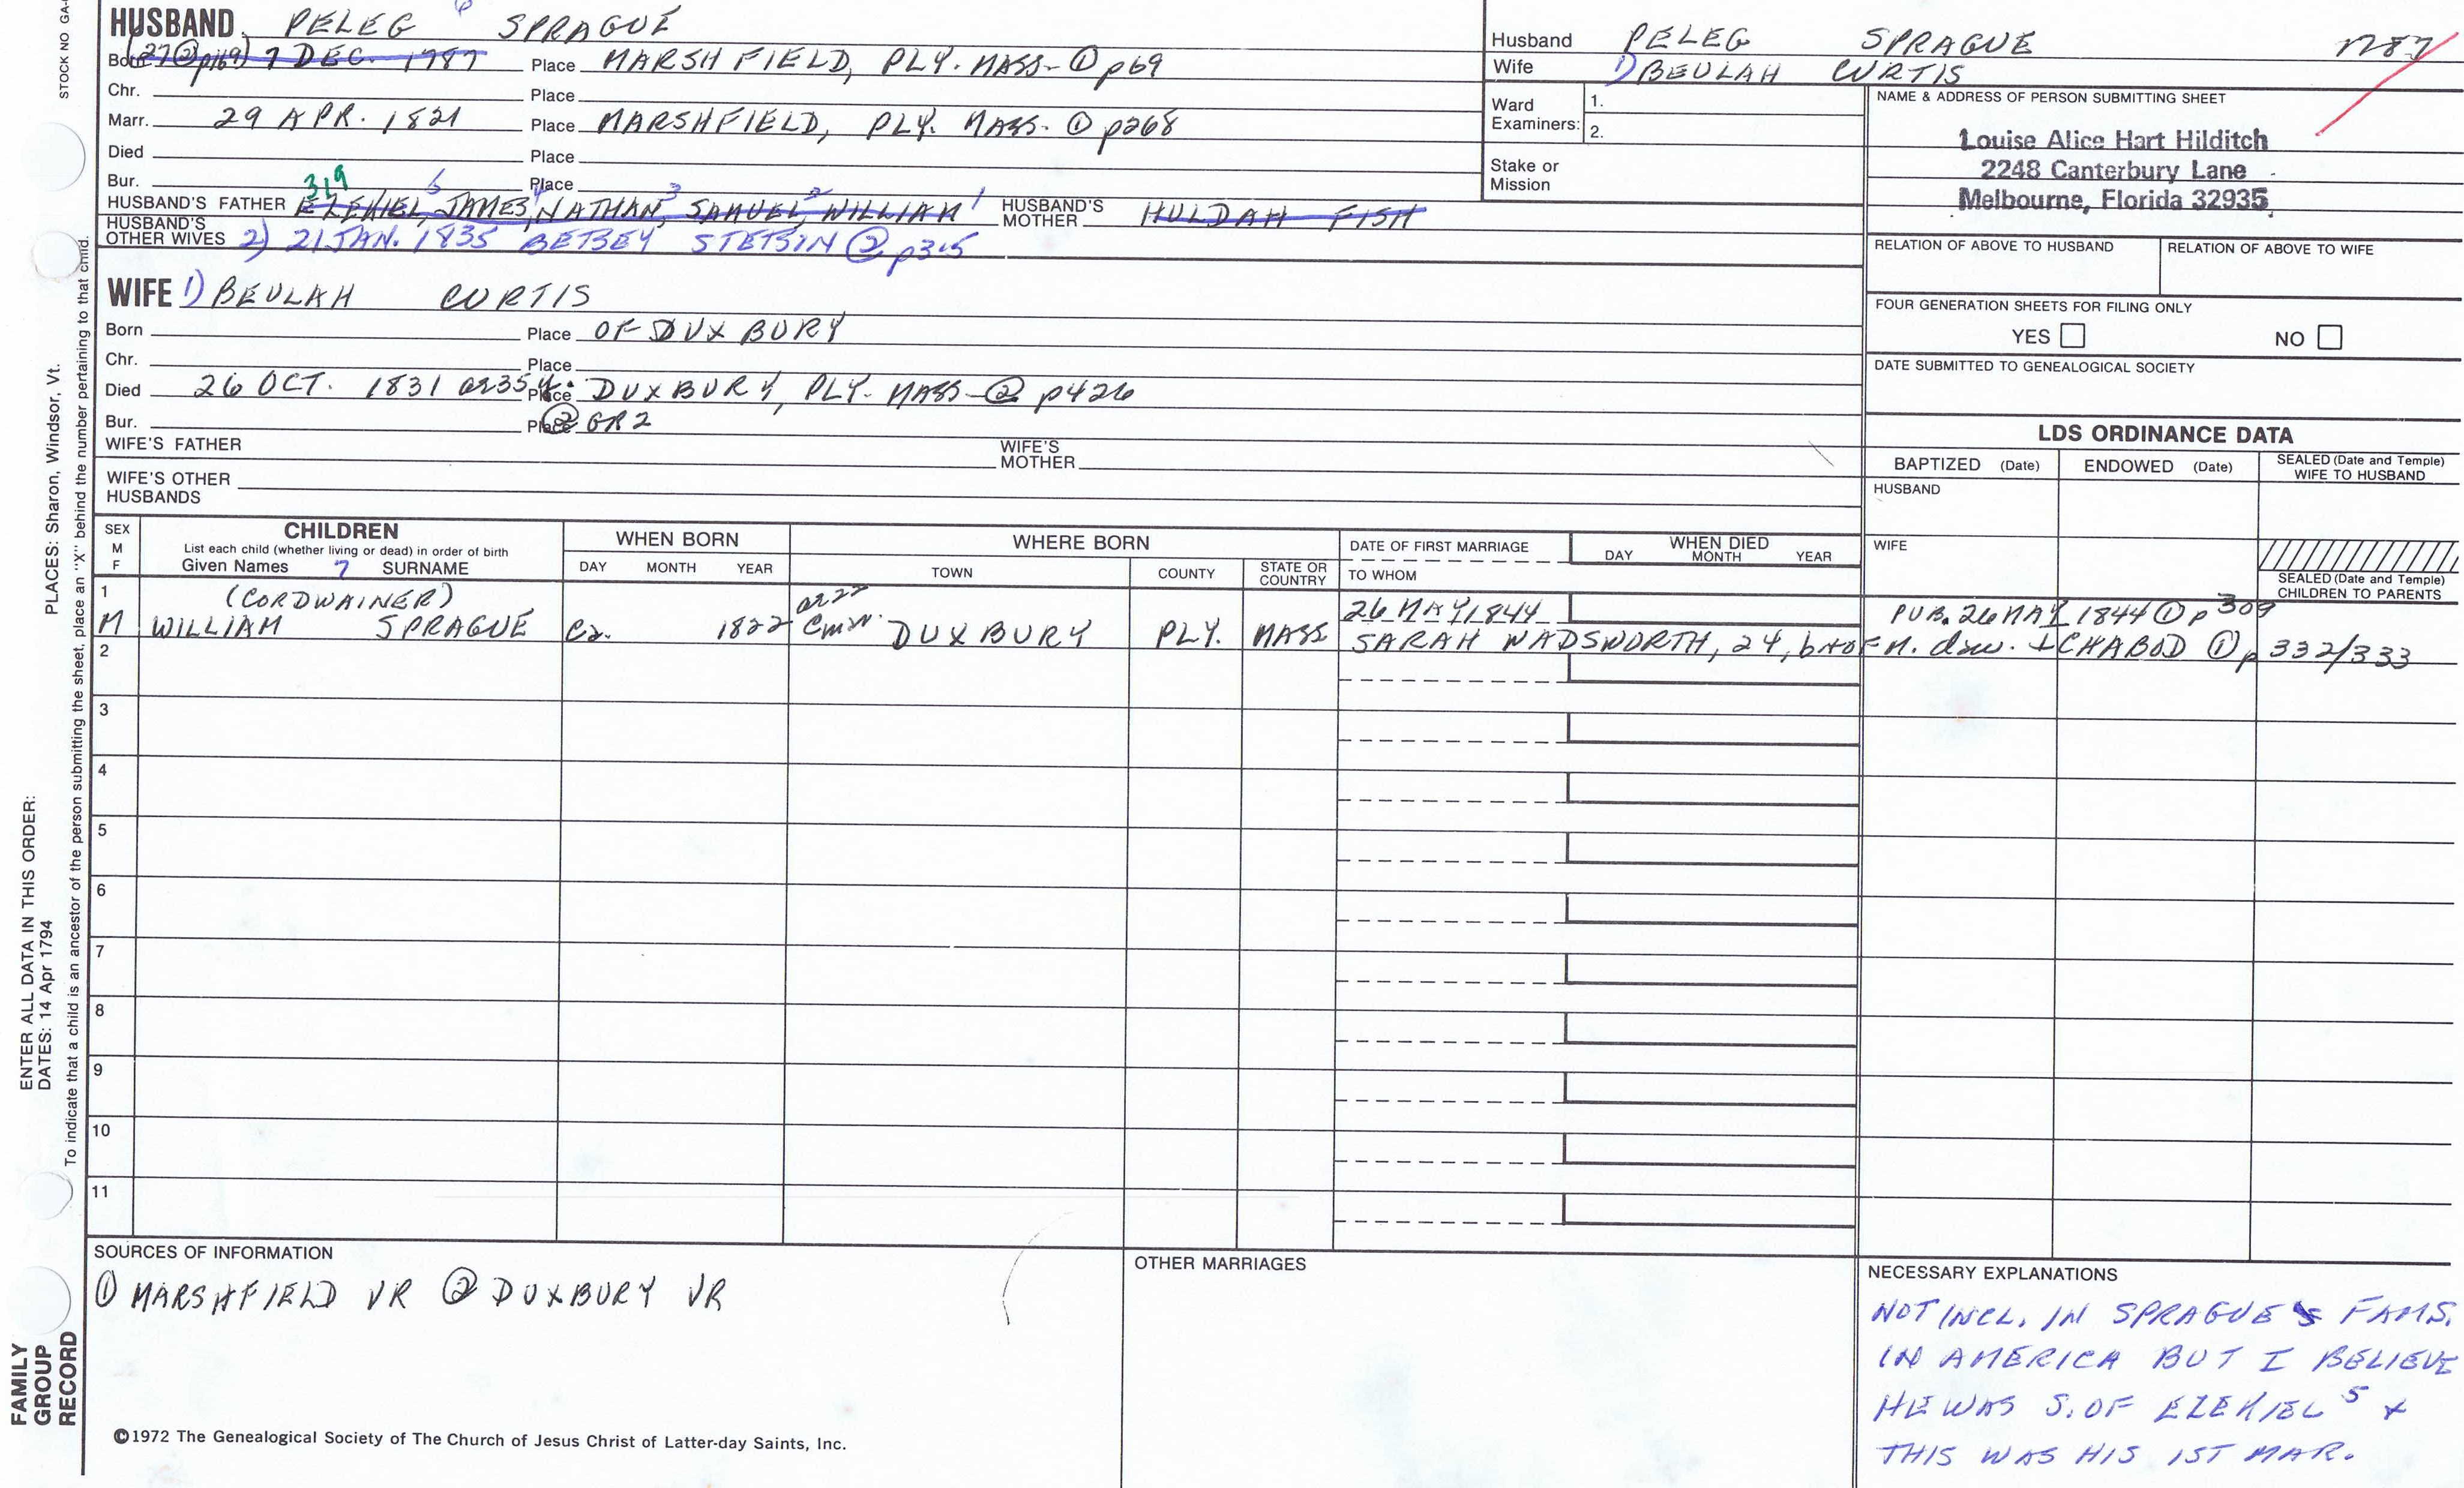 HUSBAND PELEG 6 SPRAGUE
Born (27 @ p169) 7 DEC. 1787 Place MARSHFIELD, PLY. MASS- ① p69
Chr. Place
Marr. 29 APR. 1821 Place MARSHFIELD, PLY. MASS- ① p268
Died Place
Bur. Place
319
HUSBAND'S FATHER EZEKIEL 5 JAMES, 4 NATHAN, 3 SAMUEL, 2 WILLIAM 1 HUSBAND'S MOTHER HULDAH FISH
HUSBAND'S OTHER WIVES 2) 21 JAN. 1835 BETSEY STETSIN ② p315
WIFE 1) BEULAH CURTIS
Born Place OF DUXBURY
Chr. Place
Died 26 OCT. 1831 ae 35 y. Place DUXBURY, PLY. MASS- ② p426
Bur. Place ② GR2
WIFE'S FATHER WIFE'S MOTHER
WIFE'S OTHER HUSBANDS
Husband PELEG SPRAGUE
1787
Wife 1) BEULAH CURTIS
Ward Examiners: 1.
2.
Stake or Mission
NAME & ADDRESS OF PERSON SUBMITTING SHEET
Louise Alice Hart Hilditch
2248 Canterbury Lane
Melbourne, Florida 32935
RELATION OF ABOVE TO HUSBAND RELATION OF ABOVE TO WIFE
FOUR GENERATION SHEETS FOR FILING ONLY
YES NO
DATE SUBMITTED TO GENEALOGICAL SOCIETY
LDS ORDINANCE DATA
BAPTIZED (Date) ENDOWED (Date) SEALED (Date and Temple) WIFE TO HUSBAND
HUSBAND
WIFE
SEALED (Date and Temple) CHILDREN TO PARENTS
SEX M F
CHILDREN
List each child (whether living or dead) in order of birth
Given Names 7 SURNAME
WHEN BORN
DAY MONTH YEAR
WHERE BORN
TOWN COUNTY STATE OR COUNTRY
DATE OF FIRST MARRIAGE
TO WHOM
WHEN DIED
DAY MONTH YEAR
1 (CORDWAINER) ae 22 26 MAY 1844 PUB. 26 MAY 1844 ① p 309
M WILLIAM SPRAGUE Ca. 1822 DUXBURY PLY. MASS SARAH WADSWORTH, 24, b + of M. dau. ICHABOD ① p 332/333
2
3
4
5
6
7
8
9
10
11
SOURCES OF INFORMATION
① MARSHFIELD VR ② DUXBURY VR
OTHER MARRIAGES
NECESSARY EXPLANATIONS
NOT INCL. IN SPRAGUES FAMS.
IN AMERICA BUT I BELIEVE
HE WAS S. OF EZEKIEL 5 &
THIS WAS HIS 1ST MAR.
©1972 The Genealogical Society of The Church of Jesus Christ of Latter-day Saints, Inc.
STOCK NO GA-
ENTER ALL DATA IN THIS ORDER:
DATES: 14 Apr 1794 PLACES: Sharon, Windsor, Vt.
To indicate that a child is an ancestor of the person submitting the sheet, place an "X" behind the number pertaining to that child.
FAMILY
GROUP
RECORD